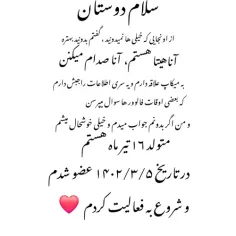 سلام دوستان
از اونجایی که خیلی ها نمیدونید ، گفتم بدونید بهتره
آناهیتا هستم، آنا صدام میکنن
به میکاپ علاقه دارم و یه سری اطلاعات راجبش دارم
که بعضی اوقات فالوور ها سوال میپرسن
و من اگر بدونم جواب میدم و خیلی خوشحال میشم
متولد ۱۶ تیر ماه هستم
در تاریخ ۱۴۰۲/۳/۵ عضو شدم
و شروع به فعالیت کردم ❤️